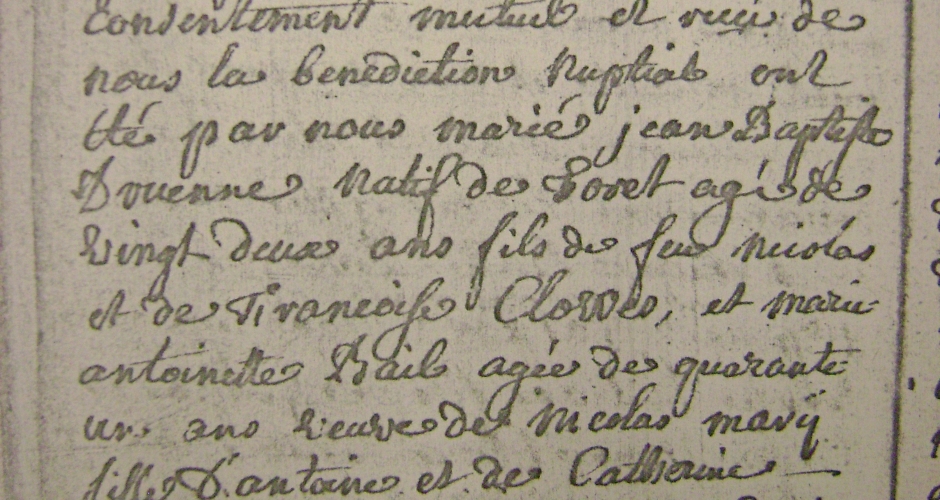 consentement mutuel et reçu de
nous la benediction nuptial ont
été par nous marié jean Baptiste
Druenne natif de Foret agé de
vingt deux ans fils de feu nicolas
et de Françoise Clowes, et marie
antoinette Bail agée de quarante
un ans veuve de nicolas marÿ
fille D'antoine et de Catherine